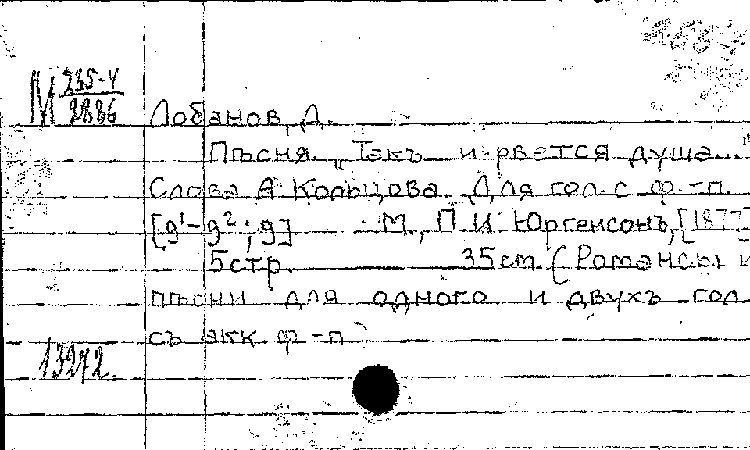 М 235-4
2886
Лобанов, Д.
Пѣсня „Такъ и рвется душа..."
Слова А. Кольцова. Для гол. с ф.-п.
[g¹-g²; g] М., П. И. Юргенсонъ, [1877]
5 стр. 35 см. (Романсы и
пѣсни для одного и двухъ гол.
съ акк. ф.-п.)
13272.